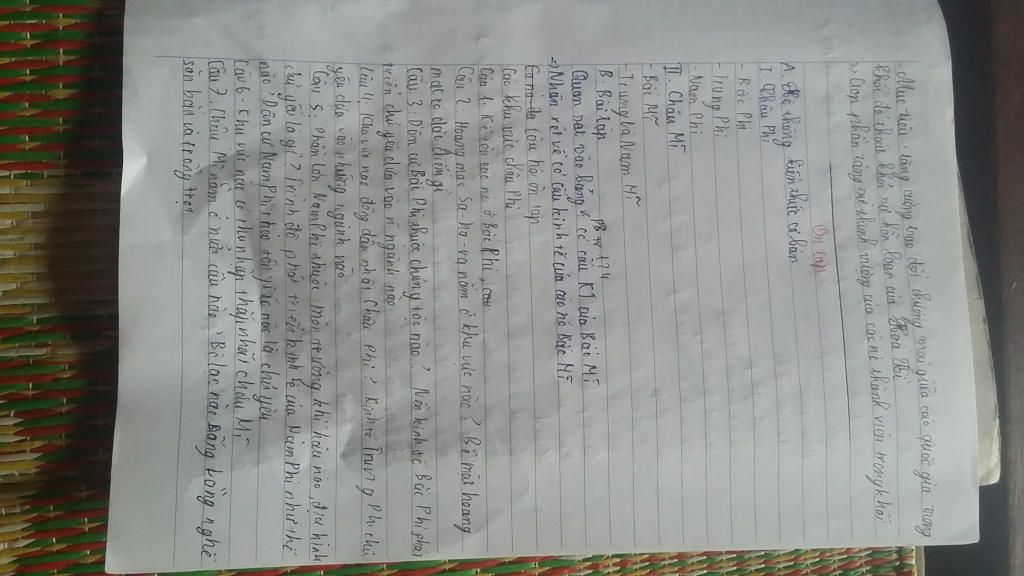 - Mục tiêu: tăng cường trao đổi thương mại giữa các quốc gia trong
khối để thoát khỏi sự lũng đoạn của Hoa Kì
-> Góp phần tăng sự thịnh vượng của các nc thành viên trong khối
Ôn tập
A. Hệ thống kiến thức cơ bản
I. Châu Phi
- Bắc Phi
- Trung Phi
- Nam Phi
II. Châu Mĩ
- Bắc Mĩ
- Trung và Nam Mĩ
B. Bài tập
Quan sát vào bảng về cơ cấu KT của Bắc Mĩ
-> Nhận xét về cơ cấu kinh tế của các nc Bắc Mĩ
Câu hỏi ôn tập
Câu 1. Kể tên các nc ở Bắc Phi, các
các khu vực châu Phi
Câu 2. Hoang mạc Sa-ha-ra nằm ở khu vực nào? Bề mặt hoang
mạc có đặc điểm gì
Câu 3. Dân cư Bắc Phi thuộc chủng tộc nào? Nền kinh tế Bắc Phi phát
triển chủ yếu dựa vào ngành nào
Câu 4. Khu vực nào đông dân nhất Châu Phi? Kinh tế Trung Phi chủ
yếu dựa vào những ngành nào
Câu 5. Phần lớn Nam Phi thuộc môi trường khí hậu nào, địa hình
chủ yếu là gì? Trình độ phát triển kinh tế của Nam Phi như thế
nào? Dân cư Nam Phi theo tôn giáo nào là chủ yếu
Câu 6. Khu vực nào có nhịp thấp nhất châu Mĩ
Câu 7. Châu Mĩ nằm ở nửa cầu nào? Bộ lạc nào sống bằng nghề
săn bắn và trồng trọt